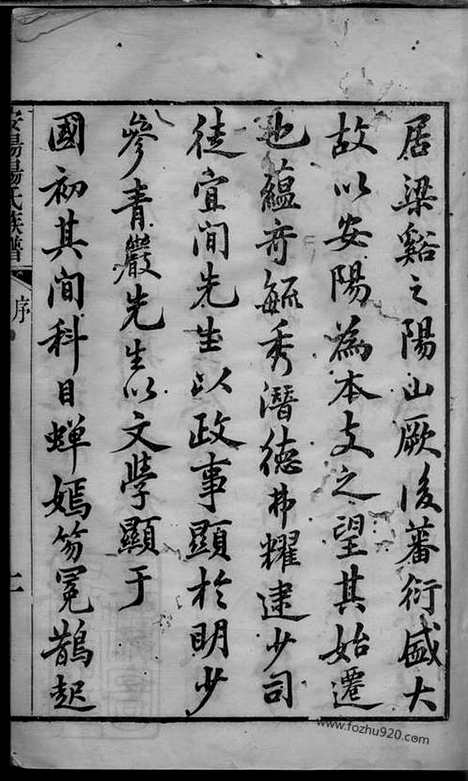 居梁谿之陽山厥後蕃衍盛大
故以安陽為本支之望其始遷
也蘊奇毓秀潛德弗耀逮少司
徒宜閒先生以政事顯於明少
參青巖先生以文學顯于
國初其間科目蟬嫣笏冕鵲起
安陽楊氏族譜
序
www.fozhu920.com